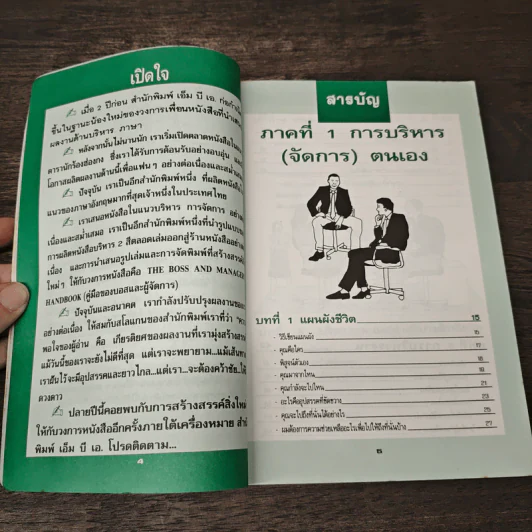 เปิดใจ
เมื่อ 2 ปีก่อน สำนักพิมพ์ เอ็ม บี เอ. ก่อกำเนิด
ขึ้นในฐานะน้องใหม่ของวงการเพื่อนหนังสือที่นำเสนอ
ผลงานด้านบริหาร ภาษา
หลังจากนั้นไม่นานนัก เราเริ่มเปิดตลาดหนังสือใน
ดารานักร้องฮ่องกง ซึ่งเราได้รับการต้อนรับอย่างอบอุ่น และ
โอกาสผลิตผลงานด้านนี้เพื่อแฟน ๆ อย่างต่อเนื่องและสม่ำเสมอ
ปัจจุบัน เราเป็นอีกสำนักพิมพ์หนึ่ง ที่ผลิตหนังสือใน
แนวของภาษาอังกฤษมากที่สุดเจ้าหนึ่งในประเทศไทย
เราเสนอหนังสือในแนวบริหาร การจัดการ อย่าง
เนื่องและสม่ำเสมอ เราเป็นอีกสำนักพิมพ์หนึ่งที่นำรูปแบบของ
การผลิตหนังสือบริหาร 2 สีตลอดเล่มออกสู่ร้านหนังสืออย่าง
เนื่อง และการนำเสนอรูปเล่มและการจัดพิมพ์ที่สร้างสรร
ใหม่ ๆ ให้กับวงการหนังสือคือ THE BOSS AND MANAGER
HANDBOOK (คู่มือของบอสและผู้จัดการ)
ปัจจุบันและอนาคต เรากำลังปรับปรุงผลงานของ
อย่างต่อเนื่อง ให้สมกับสโลแกนของสำนักพิมพ์เราที่ว่า
พอใจของผู้อ่าน คือ เกียรติยศของผลงานที่เรามุ่งสร้างสรร
แม้วันนี้ของเราจะยังไม่ดีที่สุด แต่เราจะพยายาม...แม้เส้นทาง
เราฝันไว้จะมีอุปสรรคและยาวไกล...แต่เรา...จะต้องคว้าชัยให้
ดวงดาว
ปลายปีนี้คอยพบกับการสร้างสรรค์สิ่งใหม่
ให้กับวงการหนังสืออีกครั้งภายใต้เครื่องหมาย สำนัก
พิมพ์ เอ็ม บี เอ. โปรดติดตาม...
4
สารบัญ
ภาคที่ 1 การบริหาร
(จัดการ) ตนเอง
บทที่ 1 แผนผังชีวิต 15
- วิธีเขียนแผนผัง 15
- คุณคือใคร 17
- พิสูจน์ตัวเอง 18
- คุณมาจากไหน 19
- คุณกำลังจะไปไหน 21
- อะไรคืออุปสรรคที่ขัดขวาง 23
- คุณจะไปถึงที่นั่นได้อย่างไร 25
- ผมต้องการความช่วยเหลืออะไรเพื่อไปให้ถึงที่นั่นบ้าง 27
5